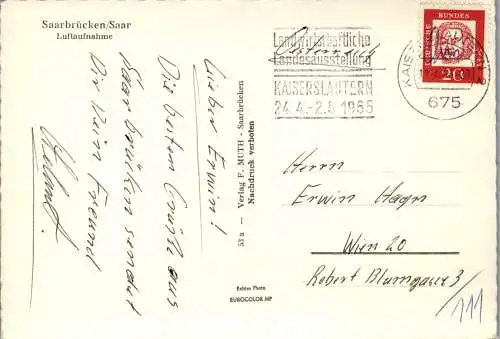 Saarbrücken/Saar
Luftaufnahme
Lieber Erwin!
Die besten Grüße aus
Saarbrücken sendet
Dir Dein Freund
Helmut.
53 a — Verlag F. MUTH - Saarbrücken
Nachdruck verboten
Echtes Photo
EUROCOLOR MP
Landwirtschaftliche
Landesausstellung
KAISERSLAUTERN
24.4.-2.5.1965
Österreich
DEUTSCHE BUNDESPOST
20
675
Herrn
Erwin Hagn
Wien 20
Robert Blumgasse 3/
111